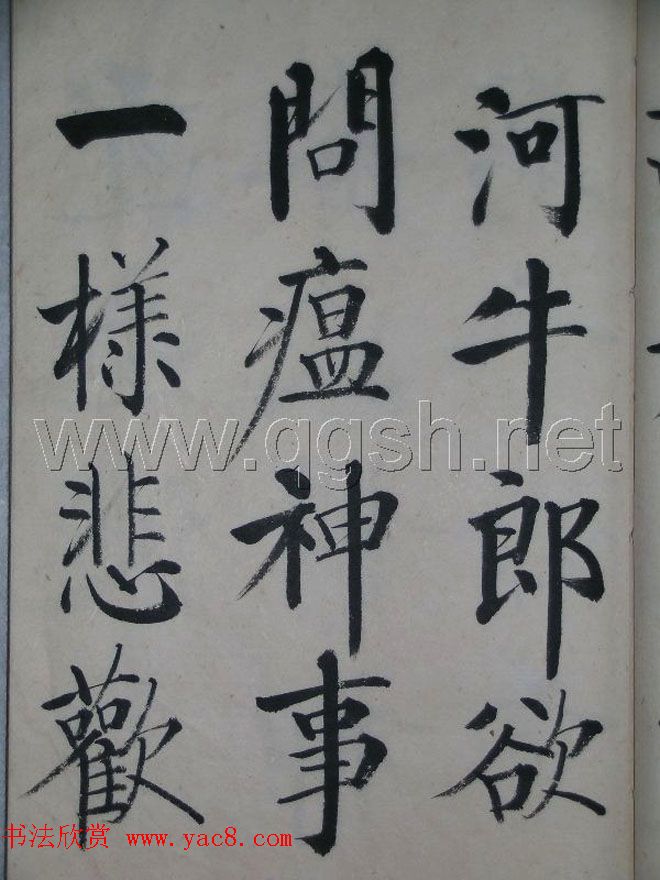 河牛郎欲
問瘟神事
一樣悲歡
www.qgsh.net
书法欣赏 www.yac8.com